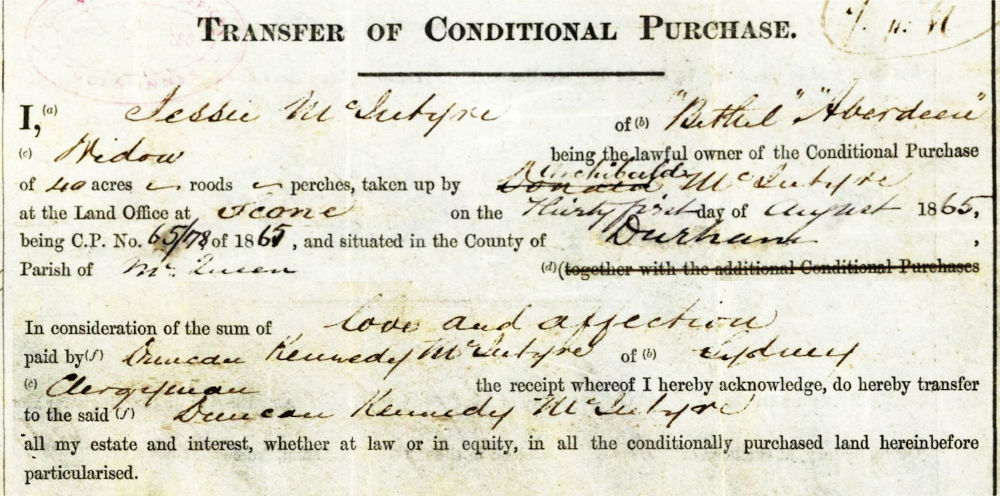 TRANSFER OF CONDITIONAL PURCHASE.
I, (a) Jessie McIntyre of (b) "Bethel" "Aberdeen"
(c) Widow being the lawful owner of the Conditional Purchase
Archibald
of 40 acres – roods – perches, taken up by Donald McIntyre
at the Land Office at Scone on the Thirty first day of August 1865,
being C.P. No. 65/178 of 1865, and situated in the County of Durham,
Parish of McQueen (d) (together with the additional Conditional Purchases
In consideration of the sum of love and affection
paid by (f) Duncan Kennedy McIntyre of (b) Sydney
(c) Clergyman the receipt whereof I hereby acknowledge, do hereby transfer
to the said (f) Duncan Kennedy McIntyre
all my estate and interest, whether at law or in equity, in all the conditionally purchased land hereinbefore
particularised.